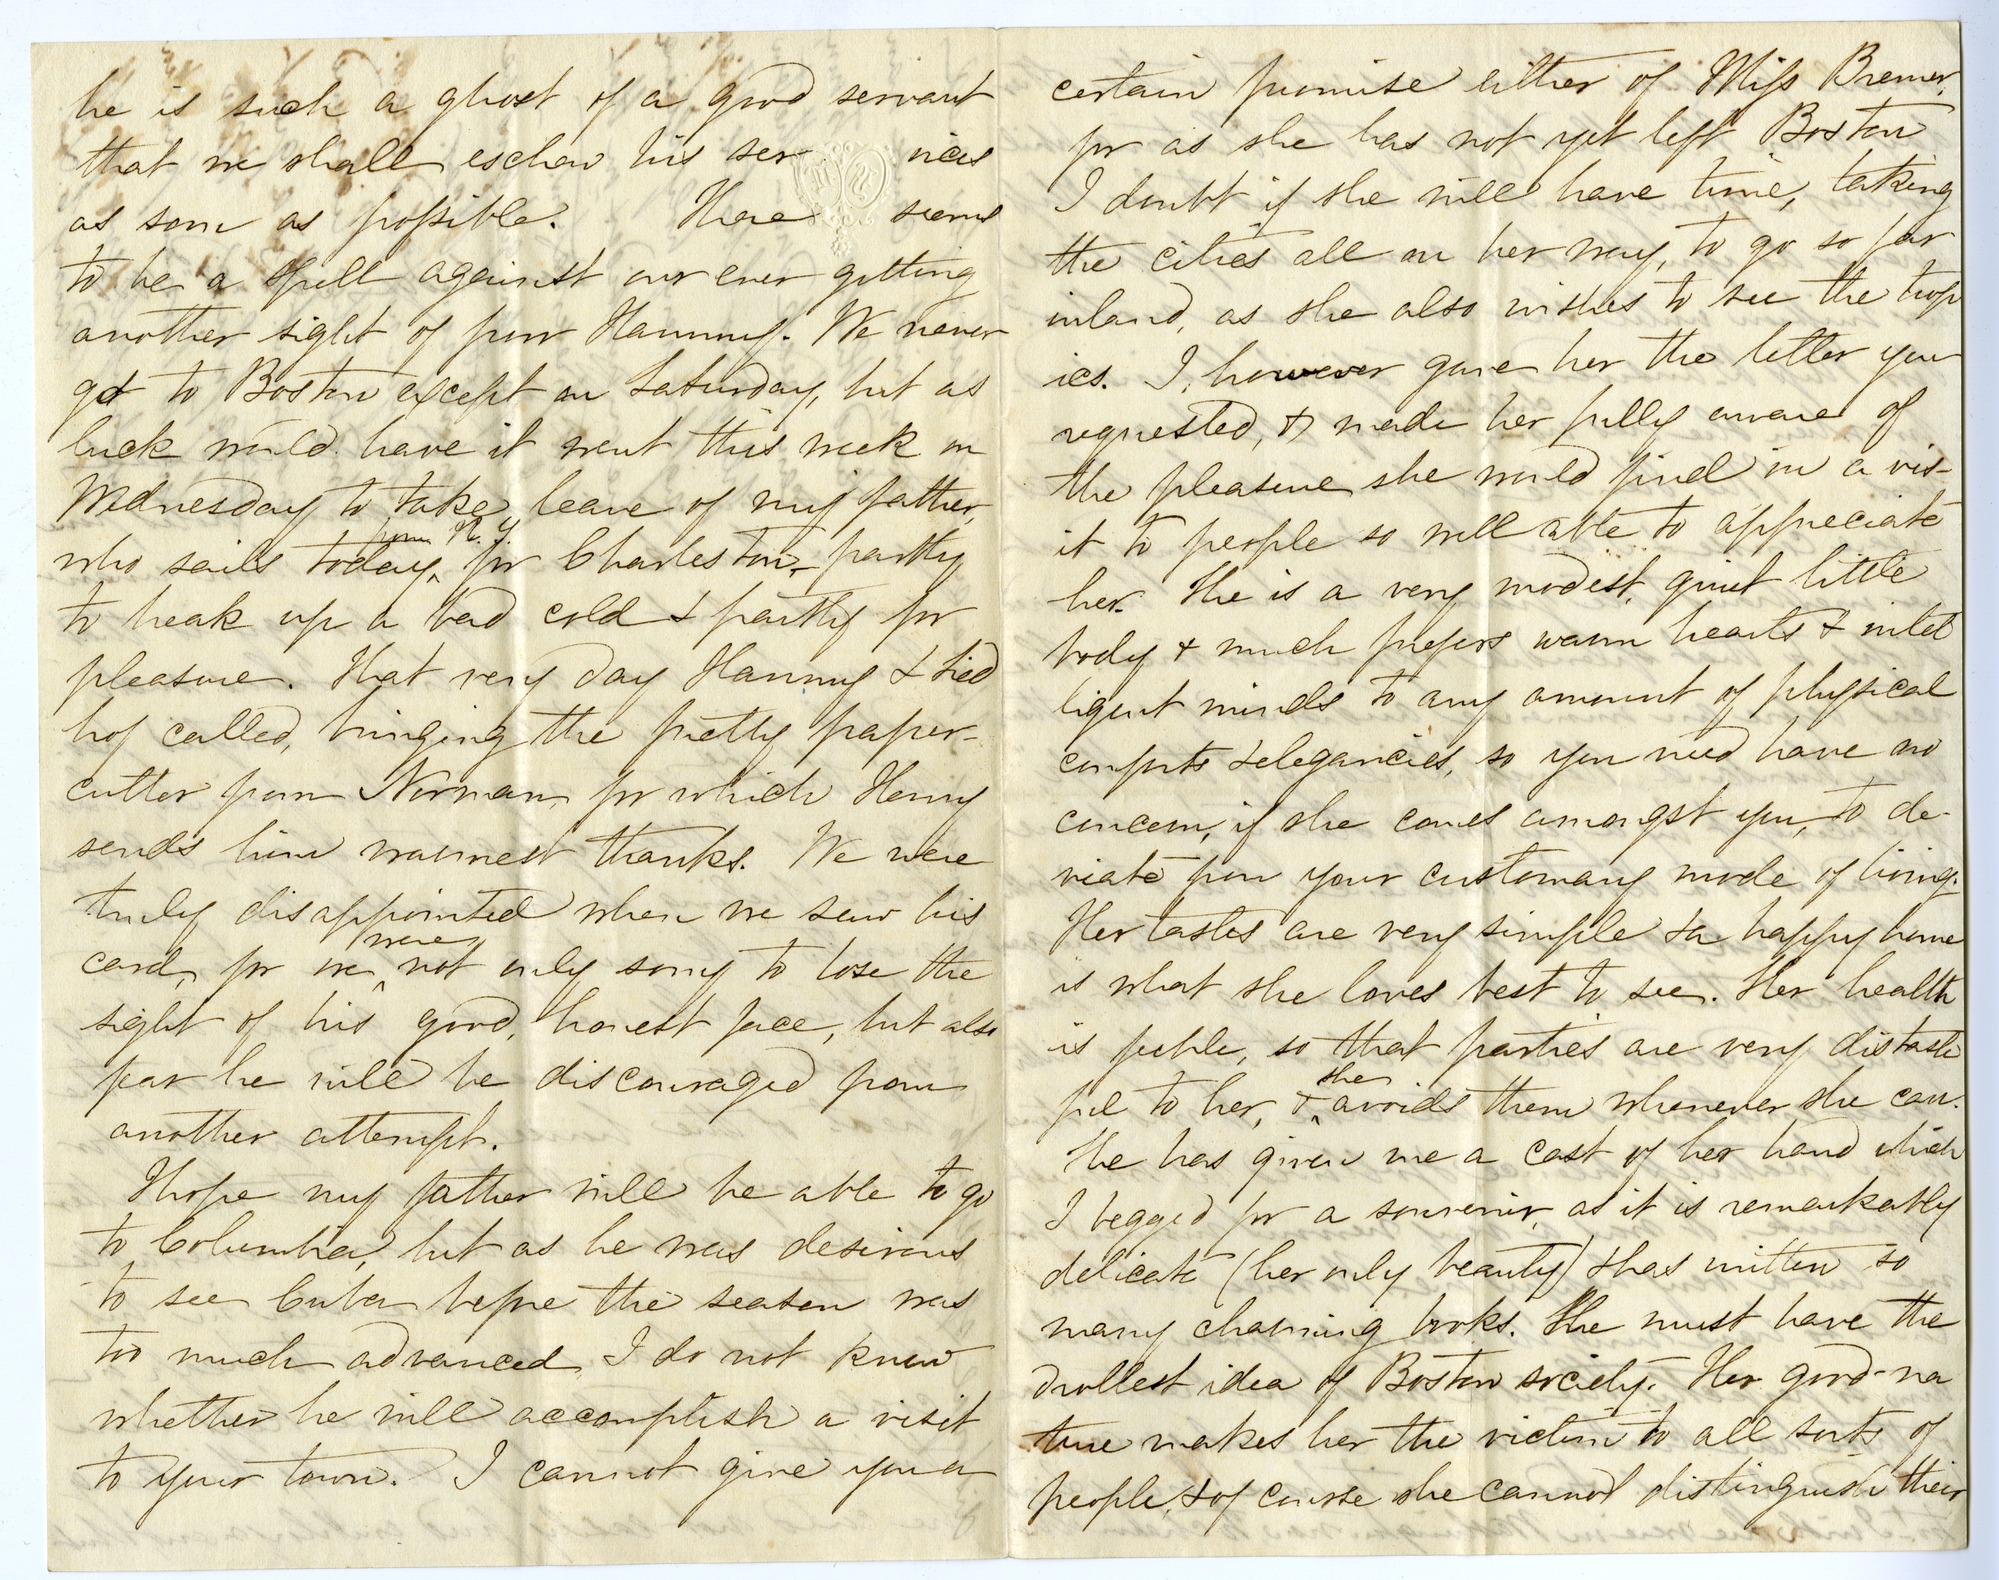 he is such a ghost of a good servant
that we shall eschew his ser vices
as soon as possible. There seems
to be a spell against our ever getting
another sight of poor Hammy. We never
get to Boston except on Saturday, but as
luck would have it went this week on
Wednesday to take leave of my father,
from N. Y.
who sails today, for Charleston, partly
to break up a bad cold & partly for
pleasure. That very day Hammy & Lied
hof called, bringing the pretty paper-
cutter from Norman, for which Henry
sends him warmest thanks. We were
truly disappointed when we saw his
were
card, for we not only sorry to lose the
sight of his good, honest face, but also
fear he will be discouraged from
another attempt.
I hope my father will be able to go
to Columbia, but as he was desirous
to see Cuba before the season was
too much advanced, I do not know
whether he will accomplish a visit
to your town. I cannot give you a
certain promise either of Miss Bremer,
for as she has not yet left Boston
I doubt if she will have time, taking
the cities all on her way, to go so far
inland, as she also wishes to see the trop
ics. I, however gave her the letter you
requested, & made her fully aware of
the pleasure she would find in a vis-
it to people so well able to appreciate
her. She is a very modest, quiet little
body & much prefers warm hearts & intel
ligent minds to any amount of physical
comforts & elegancies, so you need have no
concern, if she comes amongst you, to de-
viate from your customary mode of living.
Her tastes are very simple & a happy home
is what she loves best to see. Her health
is feeble, so that parties are very distaste
she
ful to her, & avoids them whenever she can.
She has given me a cast of her hand which
I begged for a souvenir, as it is remarkably
delicate (her only beauty) & has written so
many charming books. She must have the
drollest idea of Boston society. Her good-na
ture makes her the victim to all sorts of
people, & of course she cannot distinguish their